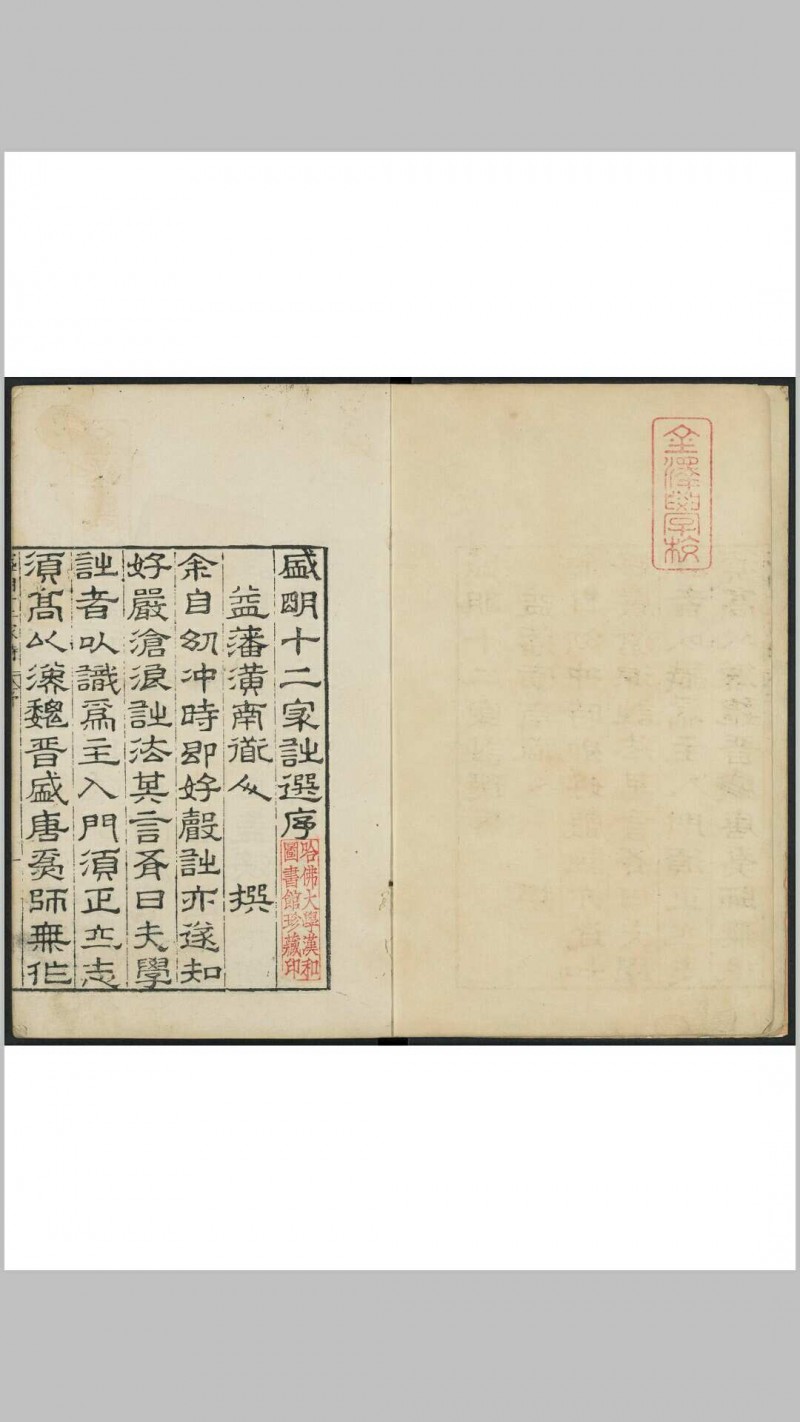 金澤學校
盛明十二家詩選序
哈佛大學漢和
圖書館珍藏印
益藩潢南衜人　撰
余自幼冲時即好聲詩亦遂知
好嚴滄浪詩法其言有曰夫學
詩者以識爲主入門須正立志
須髙以漢魏晋盛唐爲師無作